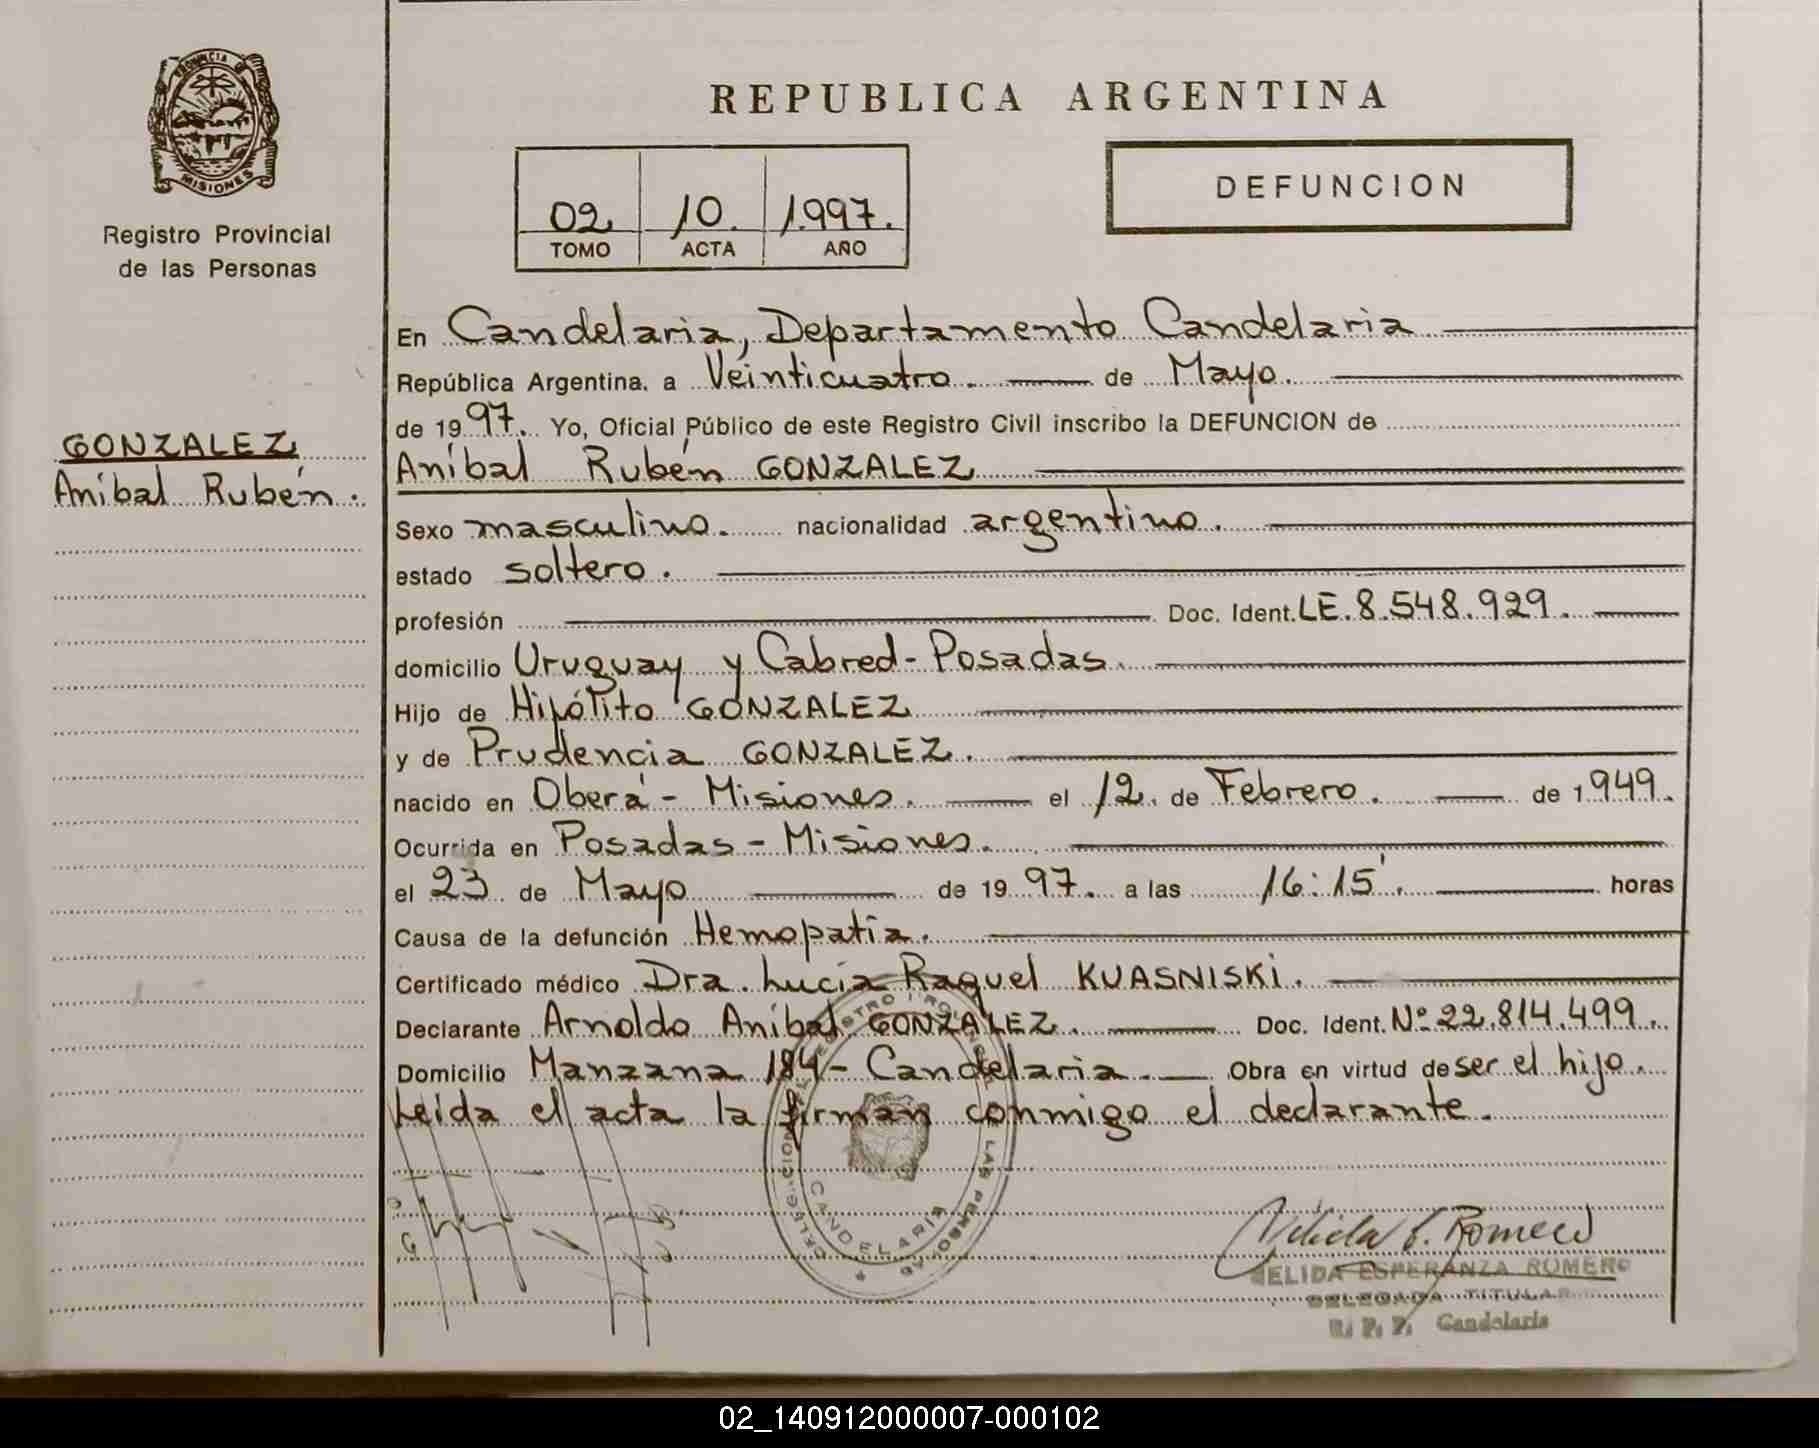 PROVINCIA DE
MISIONES
Registro Provincial
de las Personas
GONZALEZ
Aníbal Rubén.
REPUBLICA ARGENTINA
02 10. 1.997.
TOMO ACTA AÑO
DEFUNCION
En Candelaria, Departamento Candelaria
República Argentina. a Veinticuatro. de Mayo.
de 1997. Yo, Oficial Público de este Registro Civil inscribo la DEFUNCION de
Aníbal Rubén GONZALEZ
Sexo masculino. nacionalidad argentino.
estado soltero.
profesión Doc. Ident. LE. 8.548.929.
domicilio Uruguay y Cabred-Posadas.
Hijo de Hipólito GONZALEZ
y de Prudencia GONZALEZ.
nacido en Oberá - Misiones. el 12. de Febrero. de 1949.
Ocurrida en Posadas - Misiones.
el 23 de Mayo de 1997. a las 16:15'. horas
Causa de la defunción Hemopatia.
Certificado médico Dra. Lucía Raquel KUASNISKI.
Declarante Arnoldo Aníbal GONZALEZ. Doc. Ident. Nº 22.814.499.
Domicilio Manzana 184 - Candelaria. Obra en virtud de ser el hijo.
Leída el acta la firman conmigo el declarante.
CANDELARIA
Nélida E. Romero
NELIDA ESPERANZA ROMERO
DELEGADA TITULAR
R. P. P. Candelaria
02_140912000007-000102